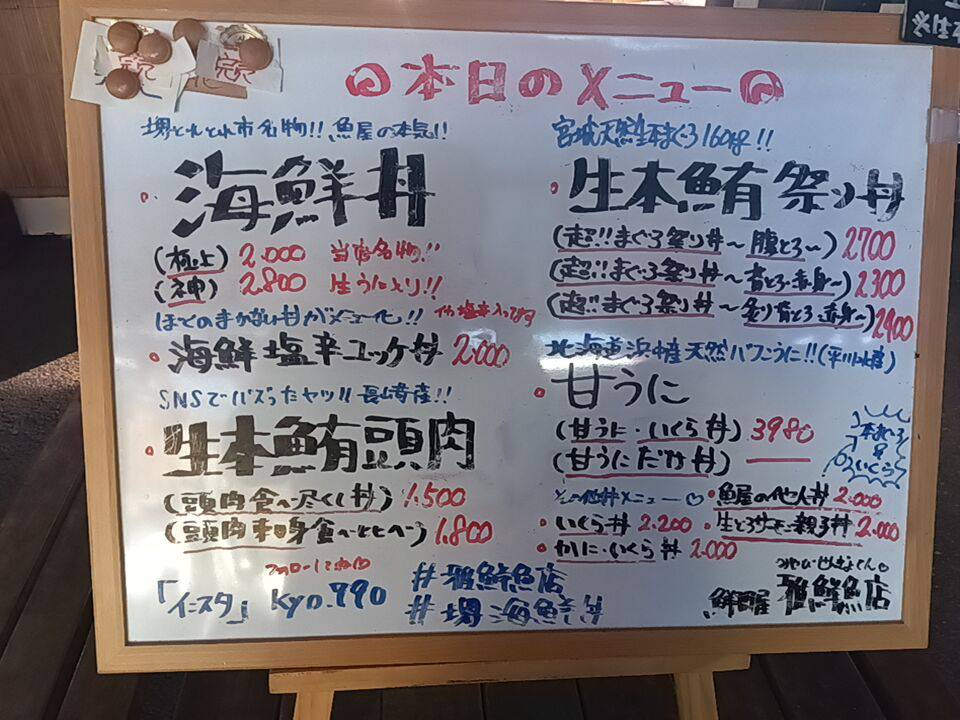 本日のメニュー
堺とれとれ市名物!! 魚屋の本気!!
・海鮮丼
(極上) 2.000 当店名物!!
(神) 2.800 生うに入り!!
メニュー化!!
・海鮮塩辛ユッケ丼 2.000
SNSでバズったヤツ!! 長崎産!!
・生本鮪頭肉
(頭肉食べ尽くし丼) 1.500
1.800
フォローしてね
「インスタ」 kyo.790
#雅鮮魚店
#堺海鮮丼
宮城天然生本まぐろ160kg!!
・生本鮪祭り丼
(超!!まぐろ祭り丼〜腹とろ〜) 2700
(超!!まぐろ祭り丼〜背とろ・赤身〜) 2300
(超!!まぐろ祭り丼〜炙り背とろ・赤身〜) 2400
北海道浜中産天然バフンうに!!
・甘うに
(甘うに・いくら丼) 3980
(甘うにだけ丼)
本まぐろ
&
いくら
その他丼メニュー
・魚屋の他人丼 2.000
・いくら丼 2.200
・生とろサーモン親子丼 2.000
・かに・いくら丼 2.000
みやび せんぎょてん
雅鮮魚店